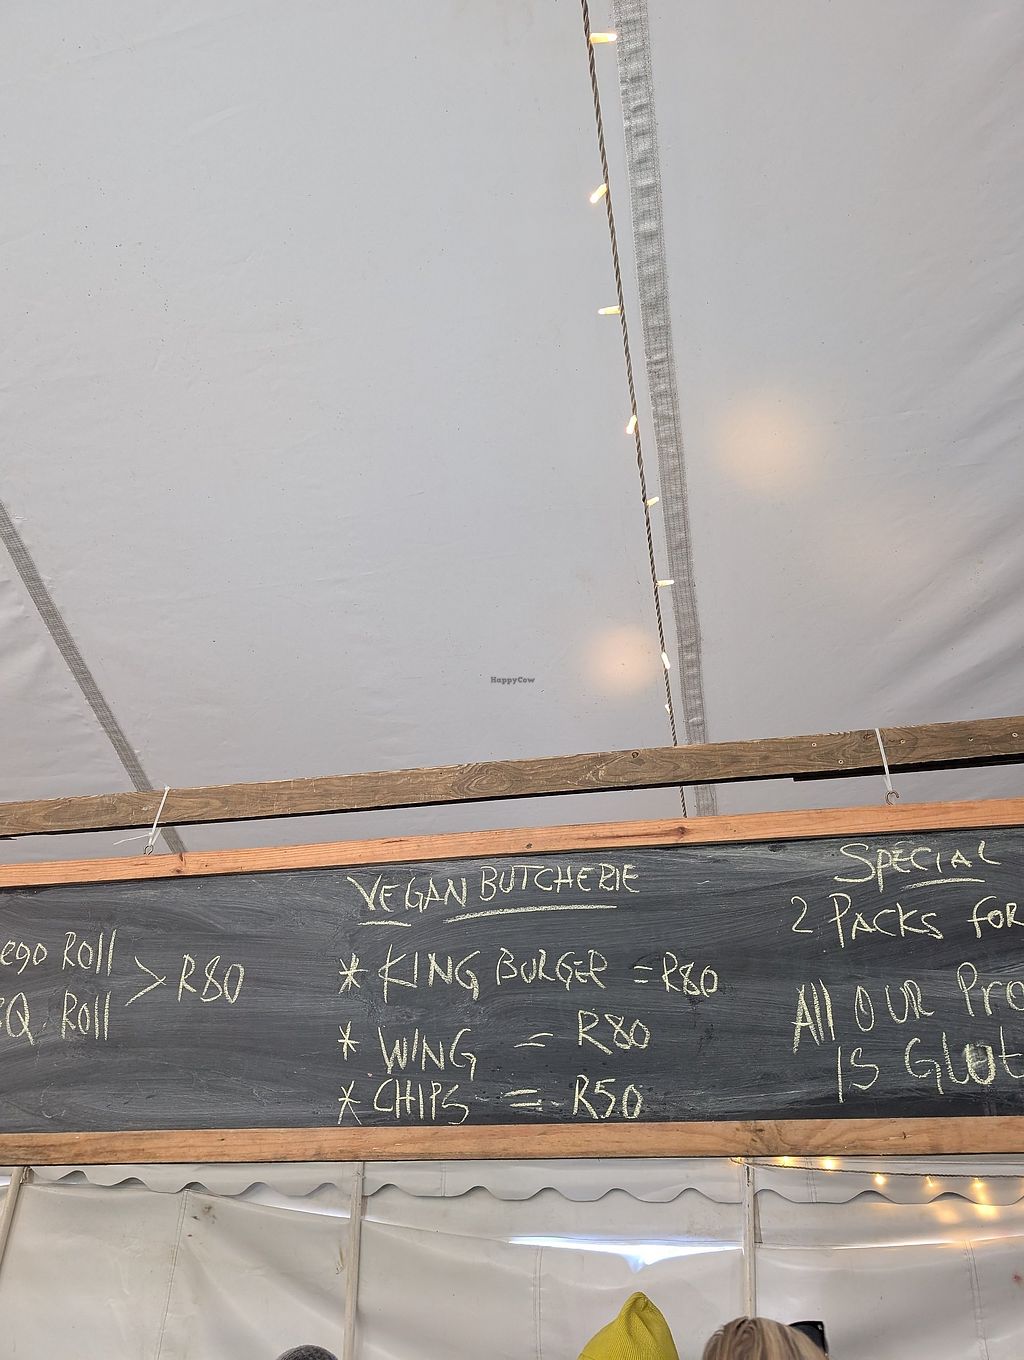 HappyCow
ROLL > R80
ROLL
VEGAN BUTCHERIE
* KING BURGER = R80
* WING = R80
* CHIPS = R50
SPECIAL
2 PACKS FOR
All OUR
IS